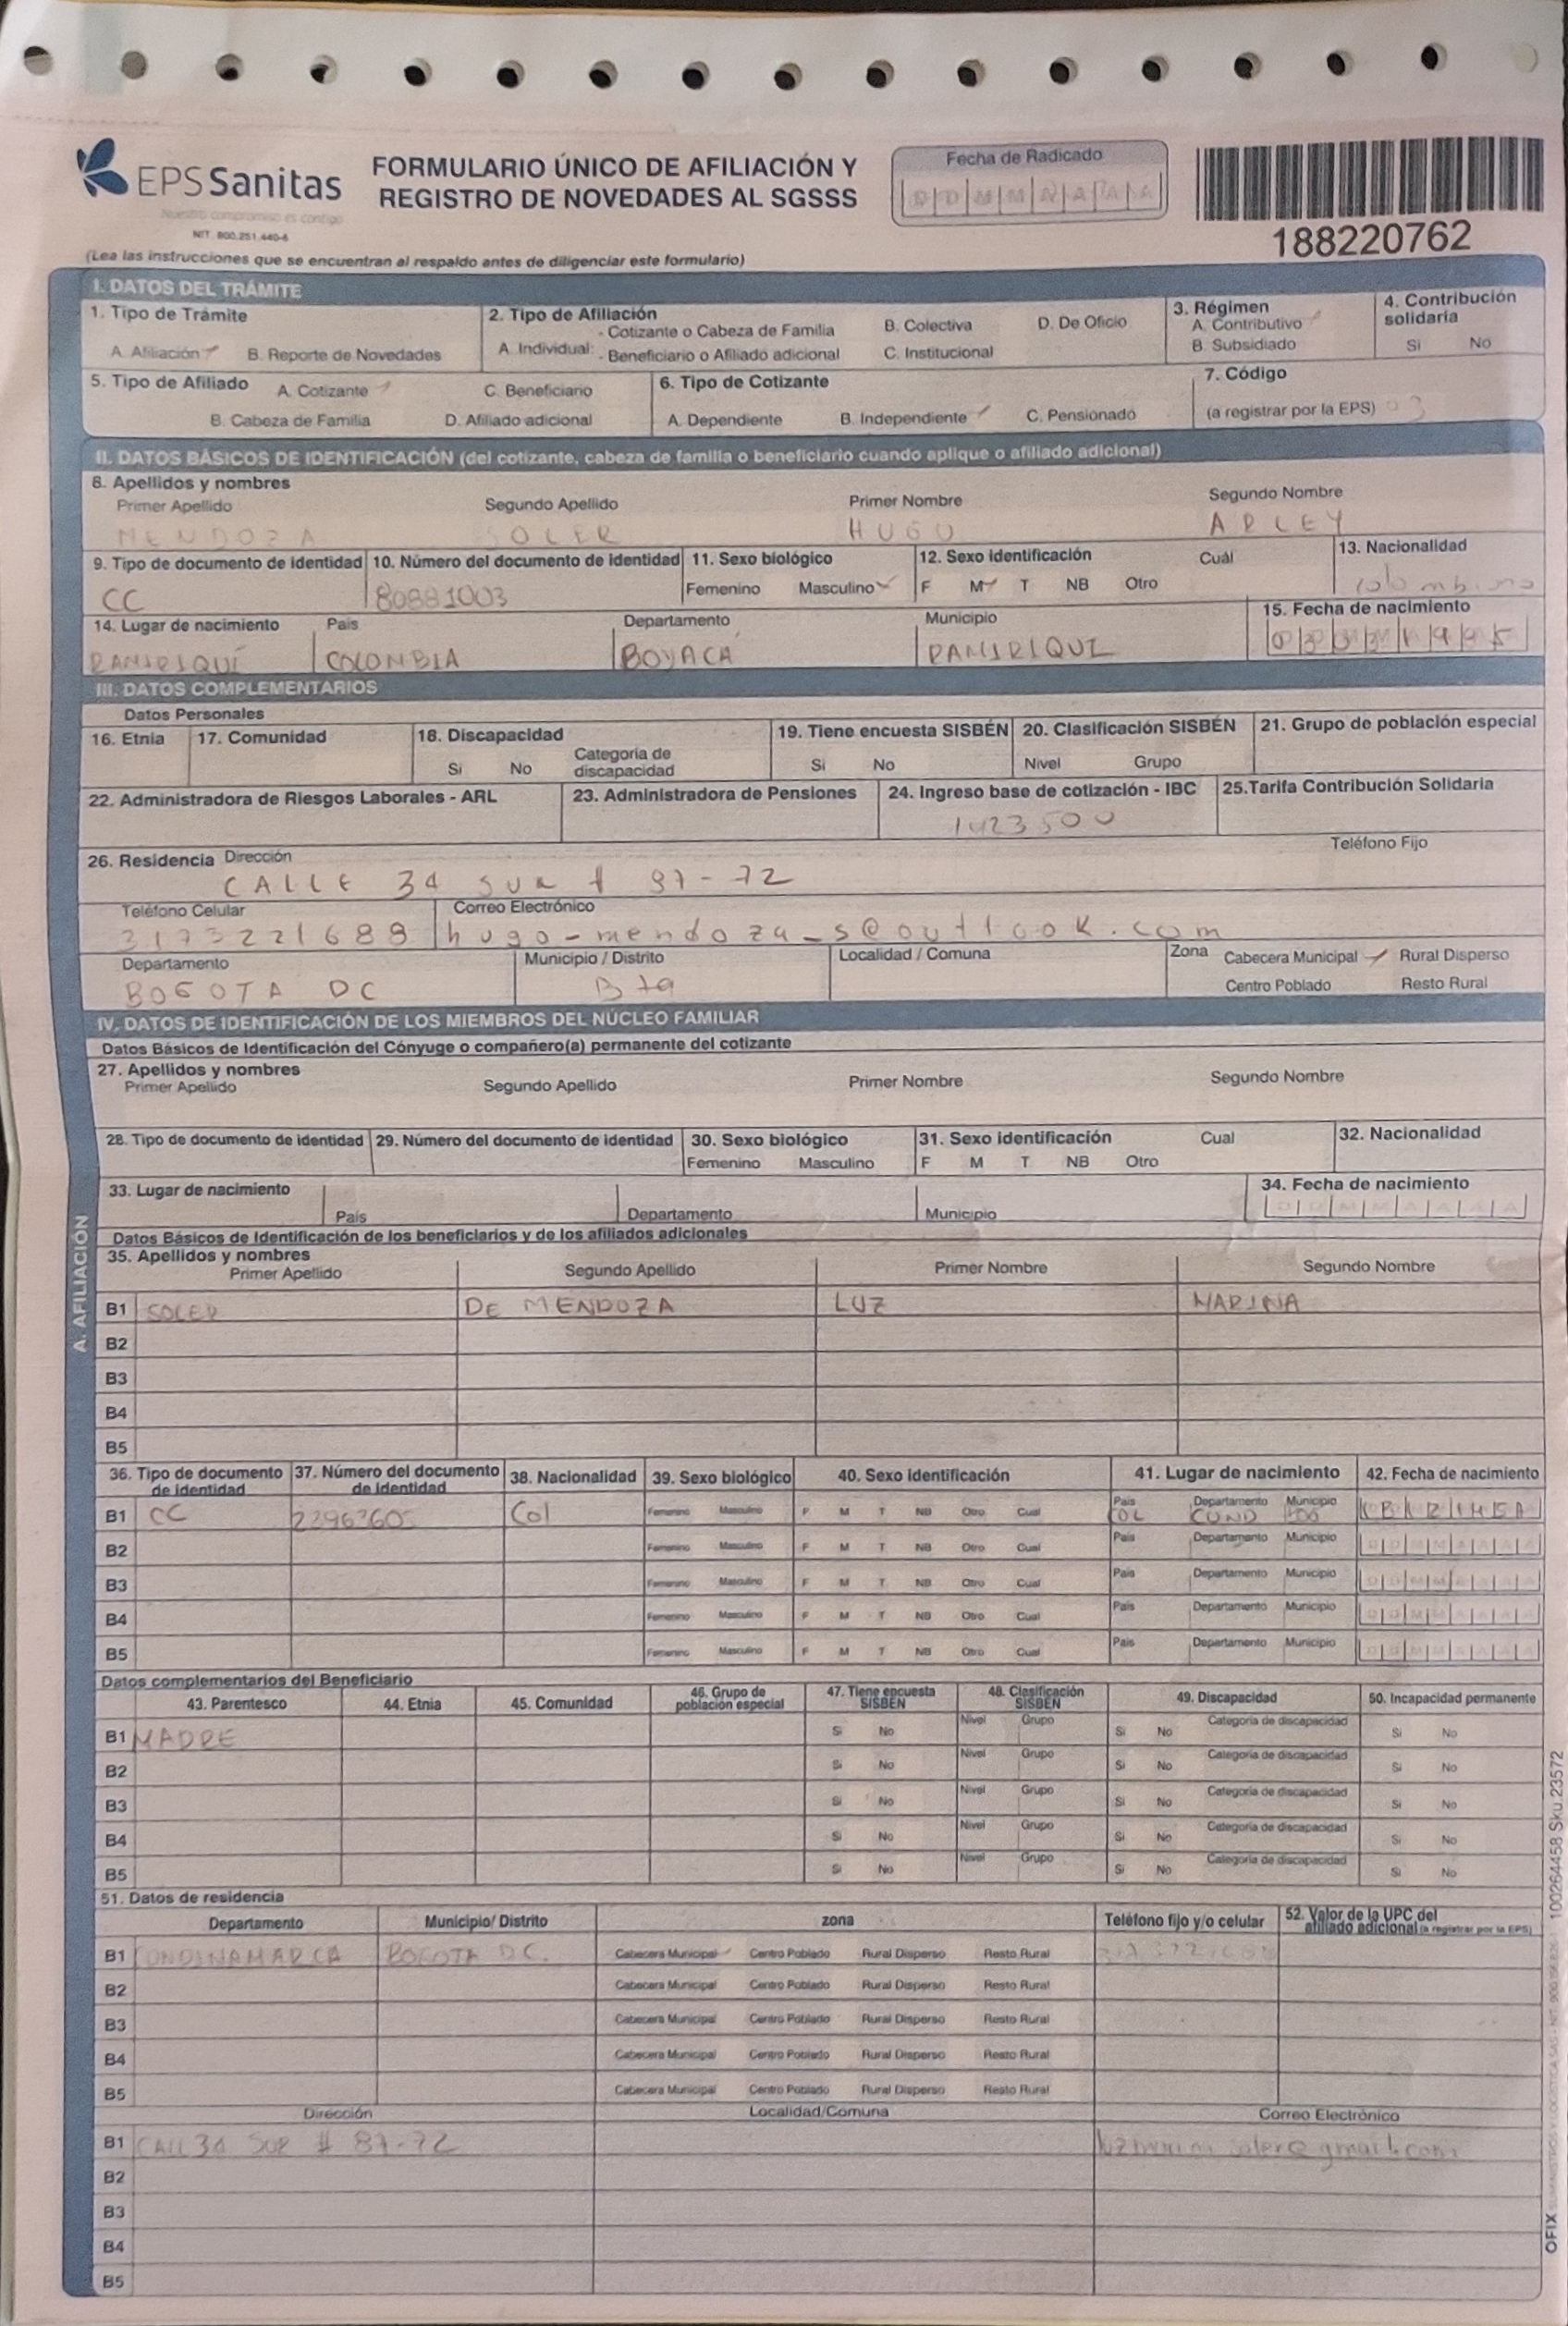 EPS Sanitas
Nuestro compromiso es contigo
NIT. 800.251.440-6
FORMULARIO ÚNICO DE AFILIACIÓN Y
REGISTRO DE NOVEDADES AL SGSSS
Fecha de Radicado
D D M M A A A A
188220762
(Lea las instrucciones que se encuentran al respaldo antes de diligenciar este formulario)
I. DATOS DEL TRÁMITE
1. Tipo de Trámite
A. Afiliación B. Reporte de Novedades
2. Tipo de Afiliación
A. Individual: - Cotizante o Cabeza de Familia
- Beneficiario o Afiliado adicional
B. Colectiva D. De Oficio
C. Institucional
3. Régimen
A. Contributivo
B. Subsidiado
4. Contribución solidaria
Si No
5. Tipo de Afiliado A. Cotizante C. Beneficiario
B. Cabeza de Familia D. Afiliado adicional
6. Tipo de Cotizante
A. Dependiente B. Independiente C. Pensionado
7. Código
(a registrar por la EPS)
II. DATOS BÁSICOS DE IDENTIFICACIÓN (del cotizante, cabeza de familia o beneficiario cuando aplique o afiliado adicional)
8. Apellidos y nombres
Primer Apellido Segundo Apellido Primer Nombre Segundo Nombre
MENDOZA SOLER HUGO ARLEY
9. Tipo de documento de identidad 10. Número del documento de identidad 11. Sexo biológico 12. Sexo identificación Cuál 13. Nacionalidad
CC 80881003 Femenino Masculino F M T NB Otro colombiano
14. Lugar de nacimiento País Departamento Municipio 15. Fecha de nacimiento
RAMIRIQUÍ COLOMBIA BOYACÁ RAMIRIQUI
III. DATOS COMPLEMENTARIOS
Datos Personales
16. Etnia 17. Comunidad 18. Discapacidad 19. Tiene encuesta SISBÉN 20. Clasificación SISBÉN 21. Grupo de población especial
Si No Categoría de discapacidad Si No Nivel Grupo
22. Administradora de Riesgos Laborales - ARL 23. Administradora de Pensiones 24. Ingreso base de cotización - IBC 25.Tarifa Contribución Solidaria
1423500
26. Residencia Dirección Teléfono Fijo
CALLE 34 SUR # 87-72
Teléfono Celular Correo Electrónico
3173221688 hugo-mendoza_s@outlook.com
Departamento Municipio / Distrito Localidad / Comuna Zona Cabecera Municipal Rural Disperso
BOGOTA DC Bta Centro Poblado Resto Rural
IV. DATOS DE IDENTIFICACIÓN DE LOS MIEMBROS DEL NÚCLEO FAMILIAR
Datos Básicos de Identificación del Cónyuge o compañero(a) permanente del cotizante
27. Apellidos y nombres
Primer Apellido Segundo Apellido Primer Nombre Segundo Nombre
28. Tipo de documento de identidad 29. Número del documento de identidad 30. Sexo biológico 31. Sexo identificación Cual 32. Nacionalidad
Femenino Masculino F M T NB Otro
33. Lugar de nacimiento País Departamento Municipio 34. Fecha de nacimiento
D D M M A A A A
Datos Básicos de Identificación de los beneficiarios y de los afiliados adicionales
35. Apellidos y nombres
Primer Apellido Segundo Apellido Primer Nombre Segundo Nombre
B1 SOLER DE MENDOZA LUZ MARINA
B2
B3
B4
B5
36. Tipo de documento de identidad 37. Número del documento de identidad 38. Nacionalidad 39. Sexo biológico 40. Sexo identificación 41. Lugar de nacimiento 42. Fecha de nacimiento
B1 CC Col Femenino Masculino F M T NB Otro Cual País Departamento Municipio
COL CUND
B2 Femenino Masculino F M T NB Otro Cual País Departamento Municipio D D M M A A A A
B3 Femenino Masculino F M T NB Otro Cual País Departamento Municipio D D M M A A A A
B4 Femenino Masculino F M T NB Otro Cual País Departamento Municipio D D M M A A A A
B5 Femenino Masculino F M T NB Otro Cual País Departamento Municipio D D M M A A A A
Datos complementarios del Beneficiario
43. Parentesco 44. Etnia 45. Comunidad 46. Grupo de población especial 47. Tiene encuesta SISBÉN 48. Clasificación SISBÉN 49. Discapacidad 50. Incapacidad permanente
B1 MADRE Si No Nivel Grupo Si No Categoría de discapacidad Si No
B2 Si No Nivel Grupo Si No Categoría de discapacidad Si No
B3 Si No Nivel Grupo Si No Categoría de discapacidad Si No
B4 Si No Nivel Grupo Si No Categoría de discapacidad Si No
B5 Si No Nivel Grupo Si No Categoría de discapacidad Si No
51. Datos de residencia
Departamento Municipio/ Distrito zona Teléfono fijo y/o celular 52. Valor de la UPC del afiliado adicional (a registrar por la EPS)
B1 CUNDINAMARCA BOGOTA DC. Cabecera Municipal Centro Poblado Rural Disperso Resto Rural
B2 Cabecera Municipal Centro Poblado Rural Disperso Resto Rural
B3 Cabecera Municipal Centro Poblado Rural Disperso Resto Rural
B4 Cabecera Municipal Centro Poblado Rural Disperso Resto Rural
B5 Cabecera Municipal Centro Poblado Rural Disperso Resto Rural
Dirección Localidad/Comuna Correo Electrónico
B1 CALL 34 SUR # 87-72
B2
B3
B4
B5
A. AFILIACIÓN
OFIX
100264458 Sku.23572